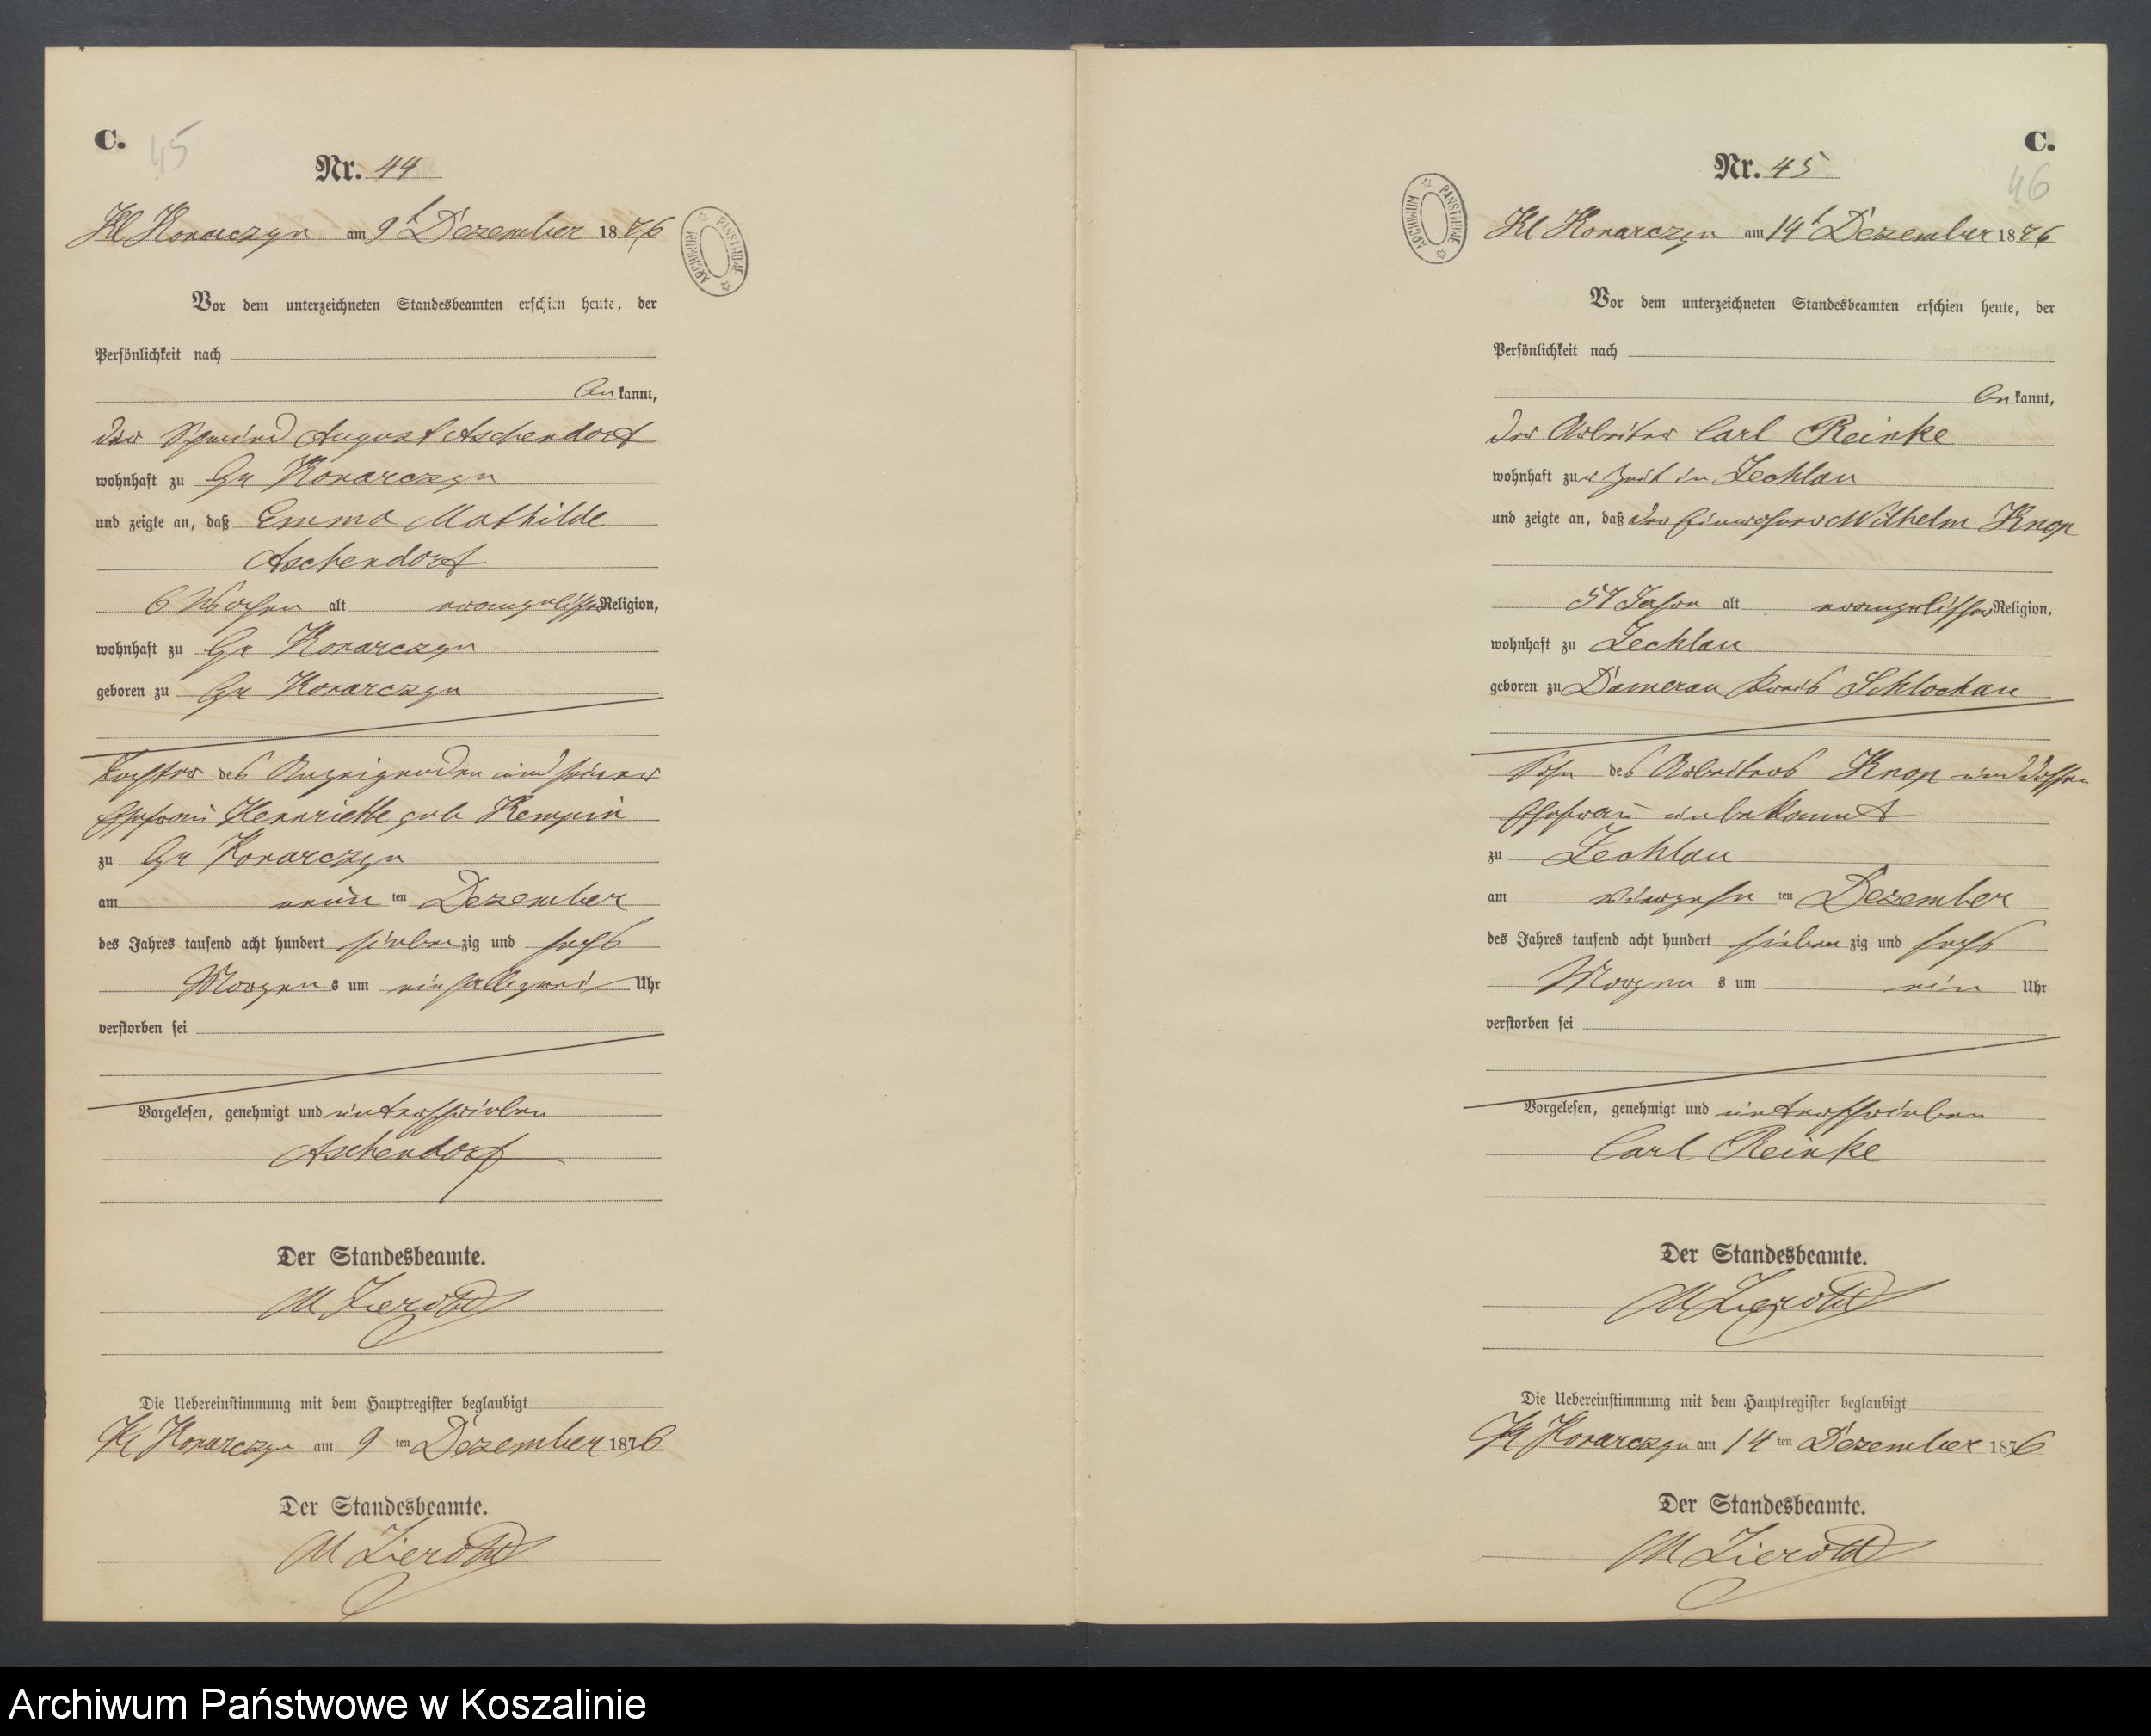 C.
45
Nr. 44
Kl Konarczyn am 9t Dezember 1876
ARCHIWUM PAŃSTWOWE
Vor dem unterzeichneten Standesbeamten erschien heute, der
Persönlichkeit nach
bekannt,
der Schmied August Aschendorf
wohnhaft zu Gr Konarczyn
und zeigte an, daß Emma Mathilde
Aschendorf
6 Wochen alt evangelischer Religion,
wohnhaft zu Gr Konarczyn
geboren zu Gr Konarczyn
Tochter des Anzeigenden und seiner
Ehefrau Henriette geb Kempin
zu Gr Konarczyn
am neun ten Dezember
des Jahres tausend acht hundert siebenzig und sechs
Morgens um ein halb zwei Uhr
verstorben sei
Vorgelesen, genehmigt und unterschrieben
Aschendorf
Der Standesbeamte.
M Zierold
Die Uebereinstimmung mit dem Hauptregister beglaubigt
Kl Konarczyn am 9 ten Dezember 1876
Der Standesbeamte.
M Zierold
C.
46
Nr. 45
ARCHIWUM PAŃSTWOWE
Kl Konarczyn am 14t Dezember 1876
Vor dem unterzeichneten Standesbeamten erschien heute, der
Persönlichkeit nach
bekannt,
der Arbeiter Carl Reinke
wohnhaft zur Zeit in Zechlau
und zeigte an, daß der Einwohner Wilhelm Knop
57 Jahre alt evangelischer Religion,
wohnhaft zu Zechlau
geboren zu Damerau Kreis Schlochau
Sohn des Arbeiters Knop und dessen
Ehefrau unbekannt
zu Zechlau
am vierzehn ten Dezember
des Jahres tausend acht hundert siebenzig und sechs
Morgens um ein Uhr
verstorben sei
Vorgelesen, genehmigt und unterschrieben
Carl Reinke
Der Standesbeamte.
M Zierold
Die Uebereinstimmung mit dem Hauptregister beglaubigt
Kl Konarczyn am 14 ten Dezember 1876
Der Standesbeamte.
M Zierold
Archiwum Państwowe w Koszalinie